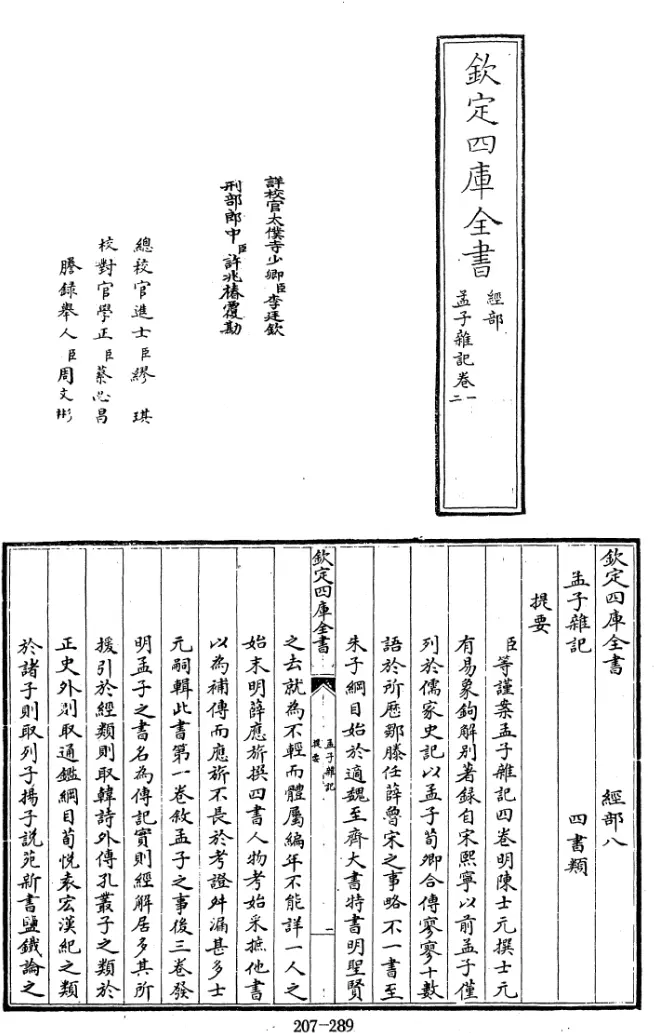 欽定四庫全書
經部
孟子雜記卷一
二
詳校官太僕寺少卿臣李廷欽
刑部郎中臣許兆椿覆勘
總校官進士臣繆琪
校對官學正臣蔡必昌
謄錄舉人臣周文彬
欽定四庫全書 經部八
孟子雜記 四書類
提要
臣等謹案孟子雜記四卷明陳士元撰士元
有易象鉤解別著錄自宋熙寧以前孟子僅
列於儒家史記以孟子荀卿合傳寥寥十數
語於所歴鄒滕任薛魯宋之事略不一書至
朱子綱目始於適魏至齊大書特書明聖賢
欽定四庫全書
孟子雜記
提要
一
之去就為不輕而體屬編年不能詳一人之
始末明薛應旂撰四書人物考始采摭他書
以為補傳而應旂不長於考證舛漏甚多士
元嗣輯此書第一卷敘孟子之事後三卷發
明孟子之書名為傳記實則經解居多其所
援引於經類則取韓詩外傳孔叢子之類於
正史外別取通鑑綱目荀悅袁宏漢紀之類
於諸子則取列子揚子說苑新書鹽鐵論之
207-289